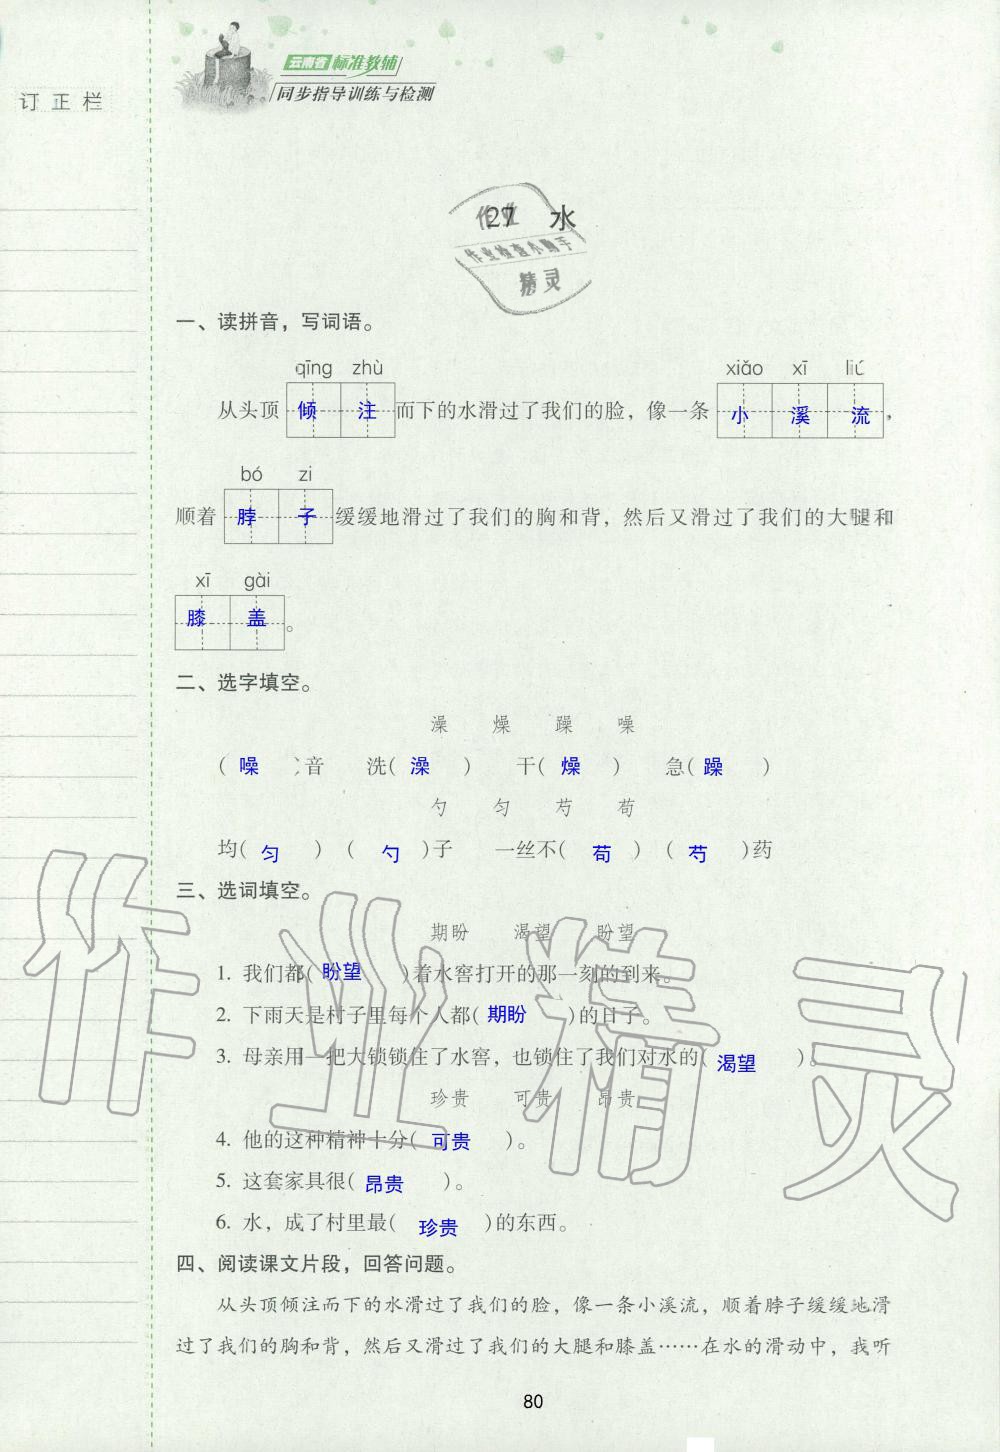 云南省 标准教辅
同步指导训练与检测
订正栏
27 水
作业
作业检查小助手
精灵
一、读拼音，写词语。
qīng zhù xiǎo xī liú
从头顶 倾 注 而下的水滑过了我们的脸，像一条 小 溪 流，
bó zi
顺着 脖 子 缓缓地滑过了我们的胸和背，然后又滑过了我们的大腿和
xī gài
膝 盖。
二、选字填空。
澡 燥 躁 噪
( 噪 )音 洗( 澡 ) 干( 燥 ) 急( 躁 )
勺 匀 芍 苟
均( 匀 ) ( 勺 )子 一丝不( 苟 ) ( 芍 )药
三、选词填空。
期盼 渴望 盼望
1. 我们都( 盼望 )着水窖打开的那一刻的到来。
2. 下雨天是村子里每个人都( 期盼 )的日子。
3. 母亲用一把大锁锁住了水窖，也锁住了我们对水的( 渴望 )。
珍贵 可贵 昂贵
4. 他的这种精神十分( 可贵 )。
5. 这套家具很( 昂贵 )。
6. 水，成了村里最( 珍贵 )的东西。
四、阅读课文片段，回答问题。
从头顶倾注而下的水滑过了我们的脸，像一条小溪流，顺着脖子缓缓地滑
过了我们的胸和背，然后又滑过了我们的大腿和膝盖……在水的滑动中，我听
80
作业精灵